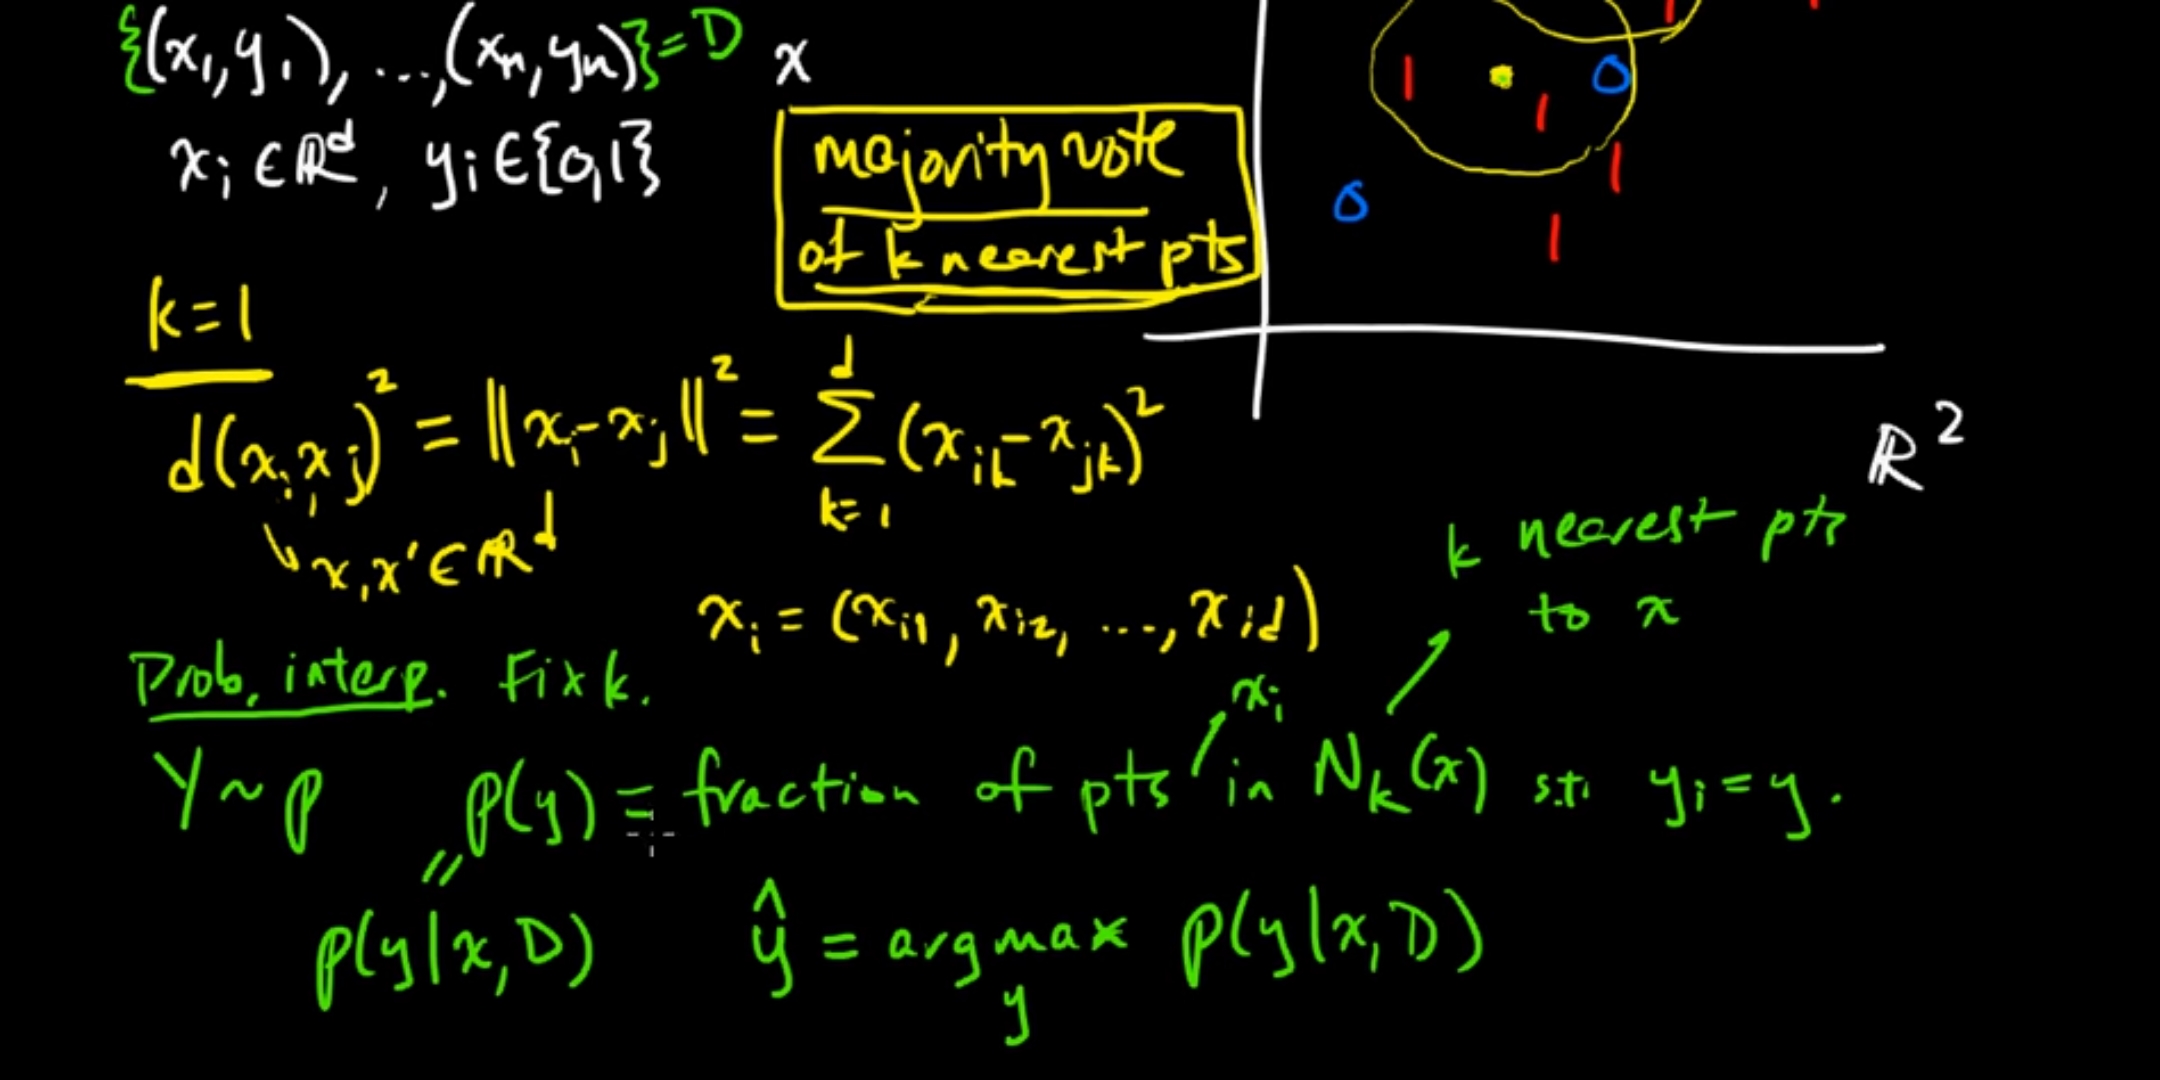 {(x₁,y₁), ...,(xₙ,yₙ)}=D x
xᵢ ∈ ℝᵈ, yᵢ ∈ {0,1}
majority vote
of k nearest pts
1 0
1
1
0
1
k=1
d(xᵢ,xⱼ)² = ||xᵢ-xⱼ||² = ∑ᵈₖ₌₁ (xᵢₖ-xⱼₖ)²
ℝ²
x,x' ∈ ℝᵈ
k nearest pts
to x
xᵢ = (xᵢ₁, xᵢ₂, ..., x_id)
Prob. interp. Fix k.
xᵢ
Y~p p(y) = fraction of pts in Nₖ(x) s.t. yᵢ=y.
"
p(y|x,D) ŷ = argmax p(y|x,D)
y